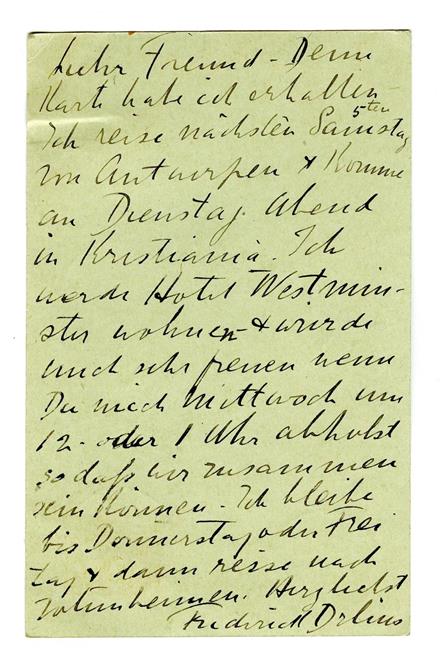 Lieber Freund - Deine
Karte habe ich erhalten -
Ich reise nächsten Samstag 5ten
von Antwerpen & komme
an Dienstag Abend
in Kristiania. Ich
werde Hotel Westmin-
ster wohnen - & würde
mich sehr freuen wenn
Du mich Mittwoch um
12 - oder 1 Uhr abholst
so daß wir zusammen
sein können - Ich bleibe
bis Donnerstag oder Frei
tag & dann reise nach
Jotunheimen. Herzlichst
Frederick Delius